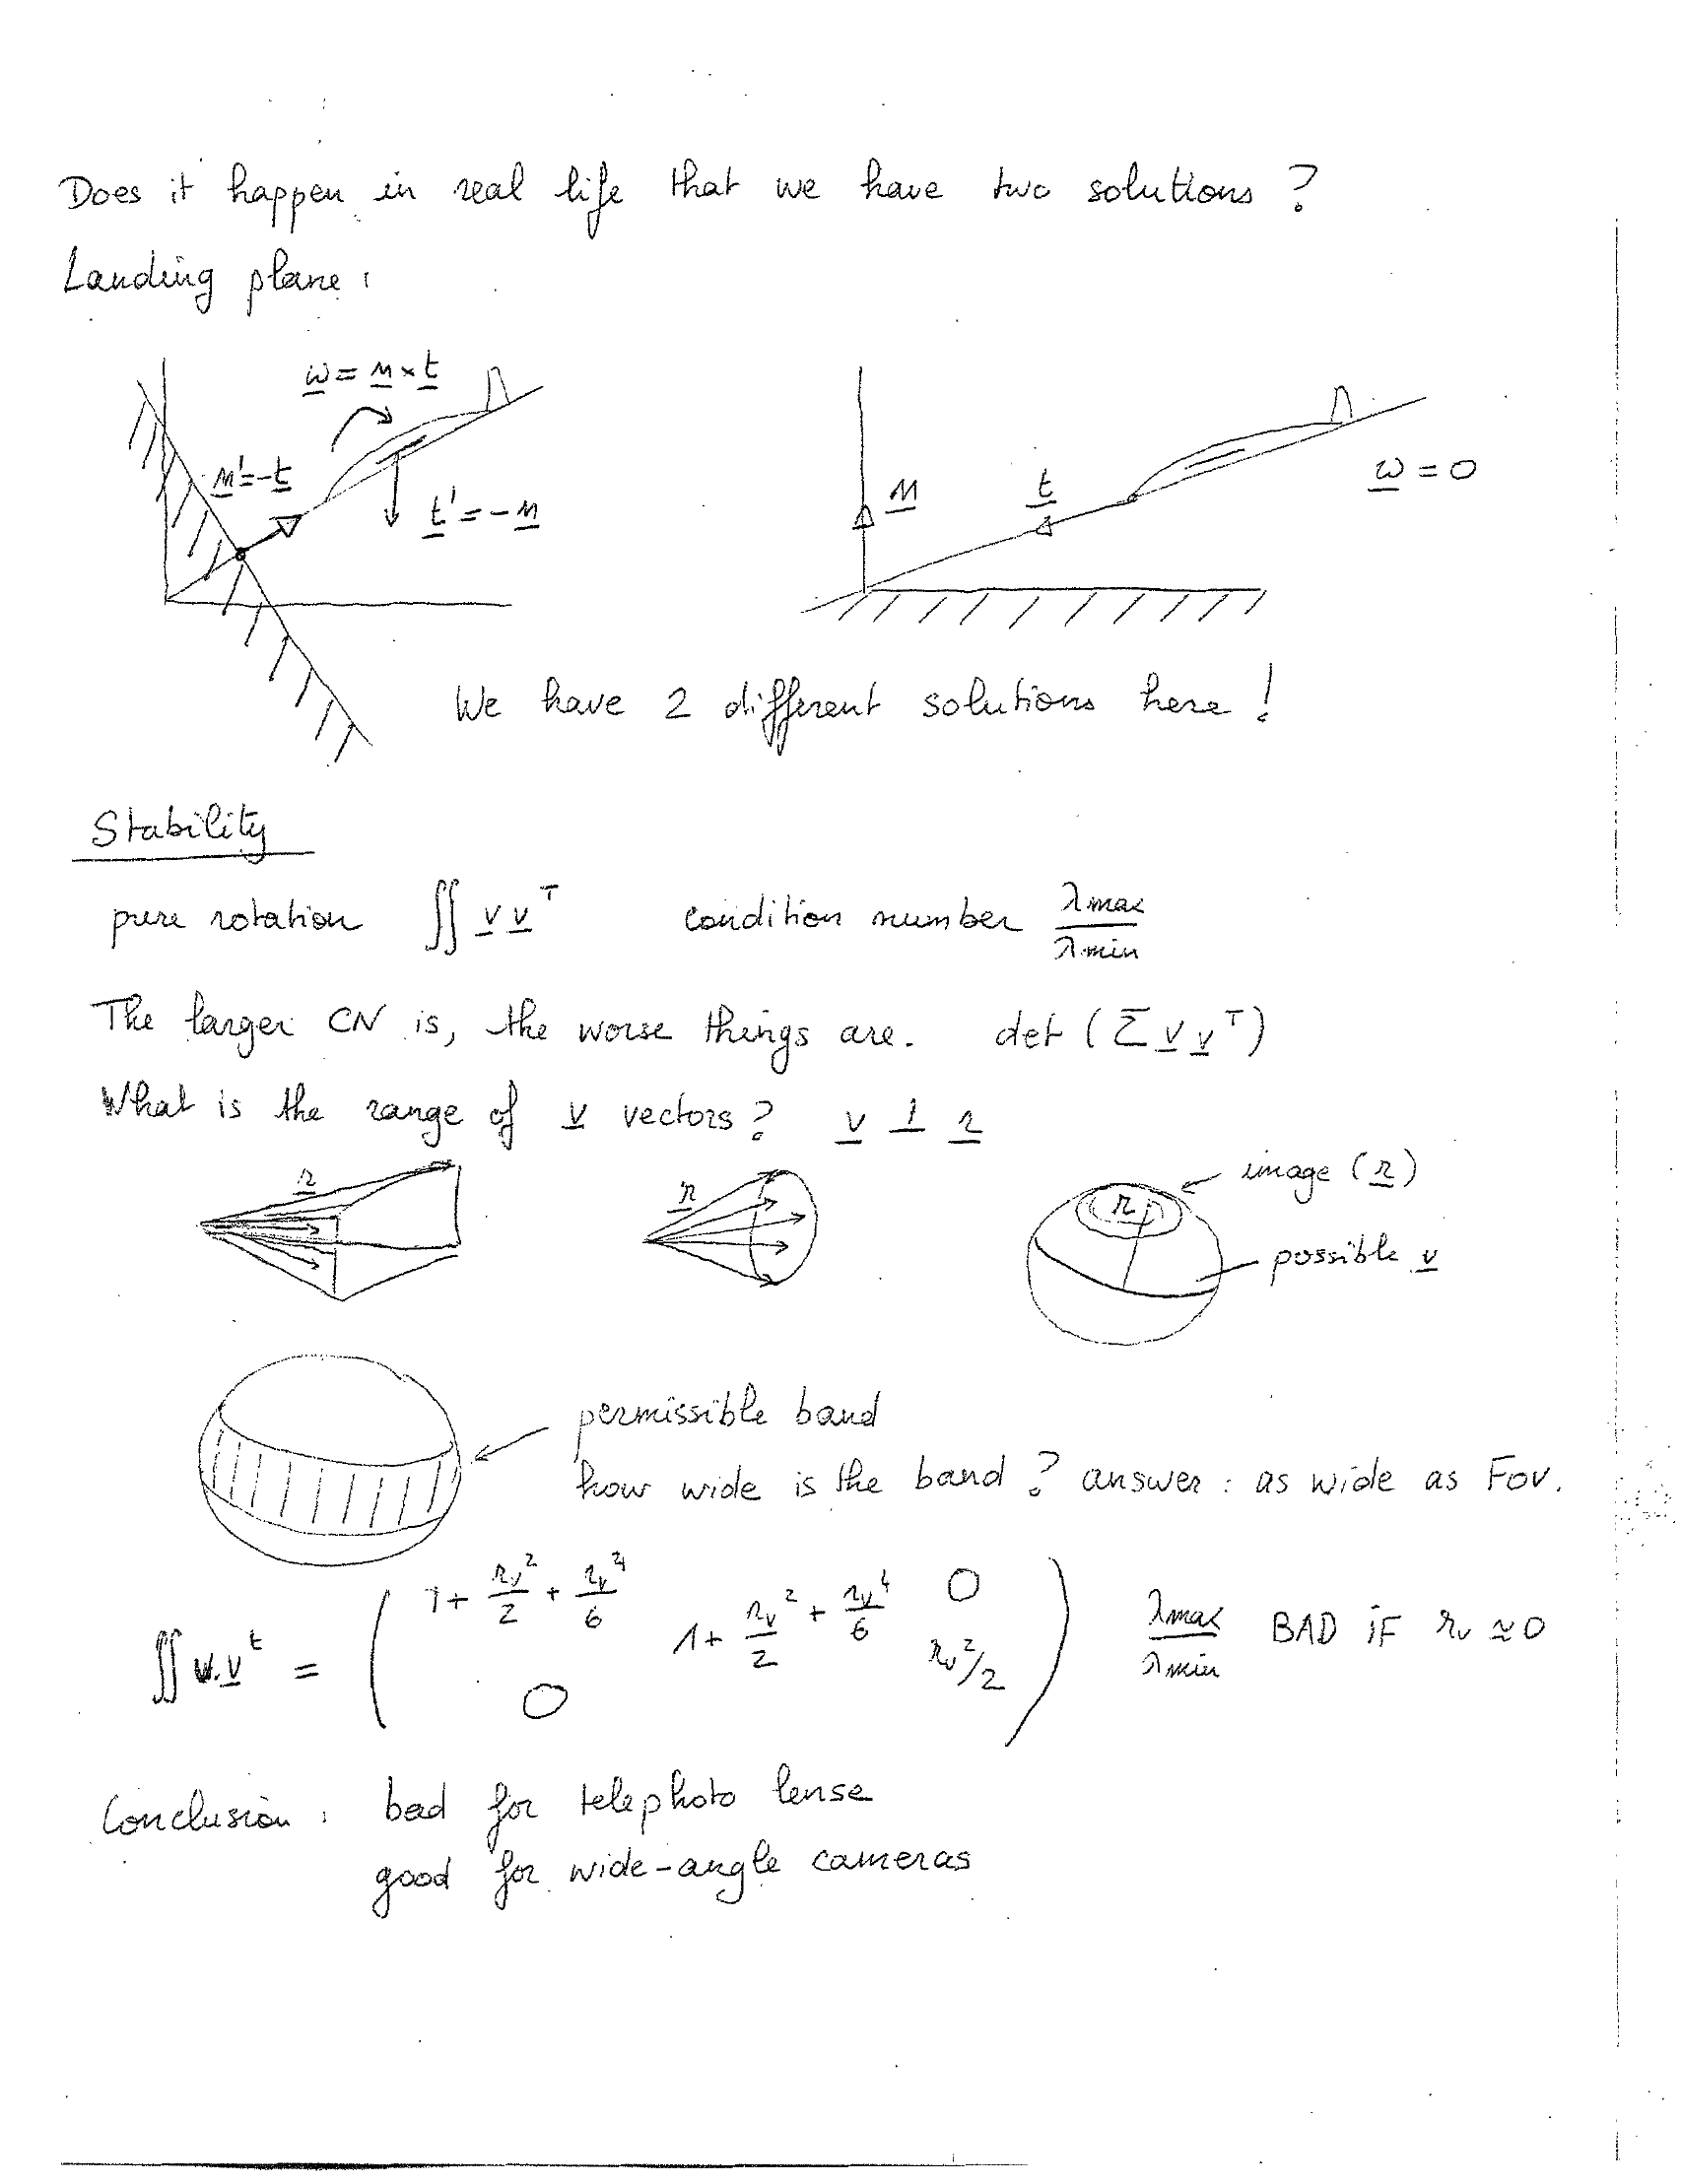 Does it happen in real life that we have two solutions ?
Landing plane :
w = n × t
n' = -t
t' = - n
n
t
w = 0
We have 2 different solutions here !
Stability
pure rotation ∬ v v^T condition number λmax/λmin
The larger CN is, the worse things are. det ( Σ v v^T )
What is the range of v vectors ? v ⊥ r
r
r
r
image ( r )
possible v
permissible band
how wide is the band ? answer : as wide as FOV.
∬ v.v^t = ( 1 + r_v^2/2 + r_v^4/6 1 + r_v^2/2 + r_v^4/6 0 0 r_v^2/2 ) λmax/λmin BAD IF r_v ≃ 0
Conclusion : bad for telephoto lense
good for wide-angle cameras